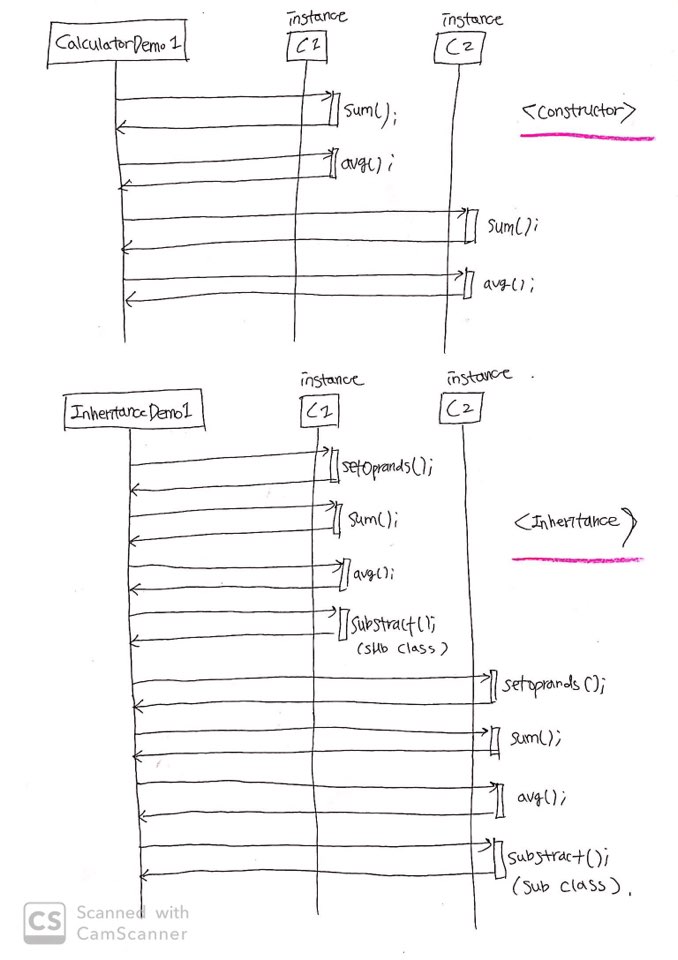 instance
instance
CalculatorDemo1
C1
C2
sum();
<Constructor>
avg();
sum();
avg();
instance
instance
InheritanceDemo1
C1
C2
setOprands();
sum();
<Inheritance>
avg();
substract();
(sub class)
setoprands();
sum();
avg();
substract();
(sub class).
CS
Scanned with
CamScanner